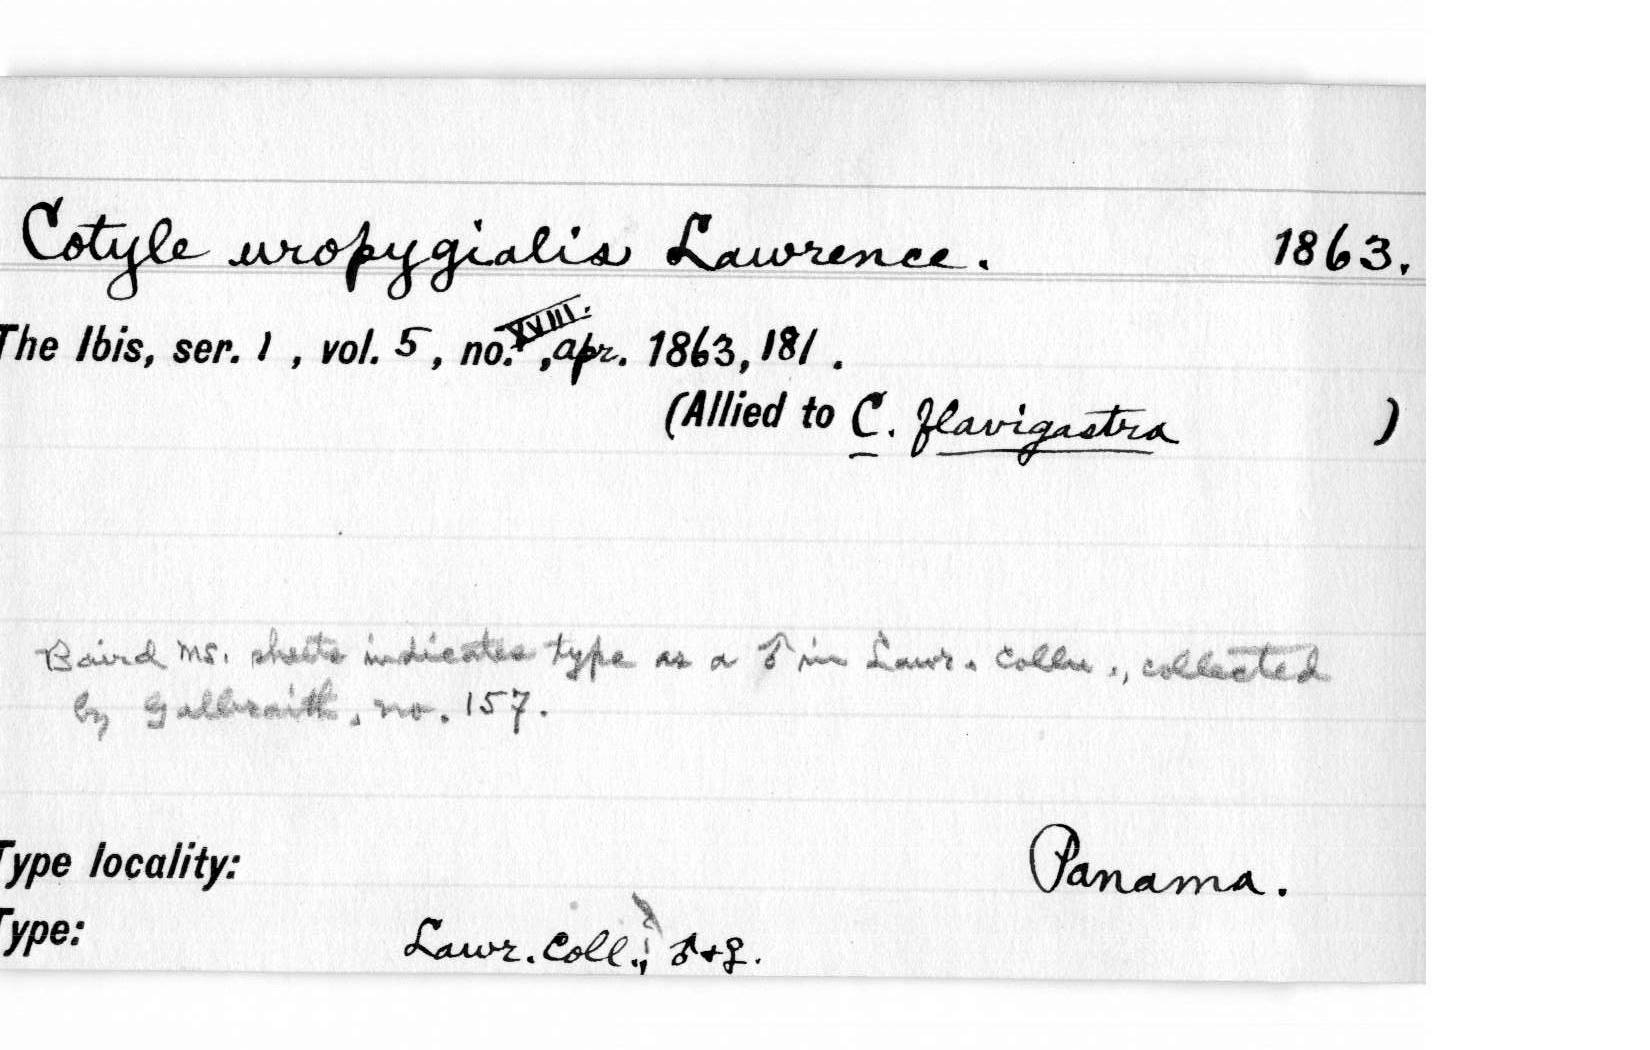 Cotyle uropygialis Lawrence. 1863.
The Ibis, ser. 1, vol. 5, no. XVIII., apr. 1863, 181.
(Allied to C. flavigastra )
Baird MS. sheets indicates type as a ♂ in Lawr. Colln., collected
by Galbraith, no. 157.
Type locality: Panama.
Type: Lawr. Coll.; ♂+♀.